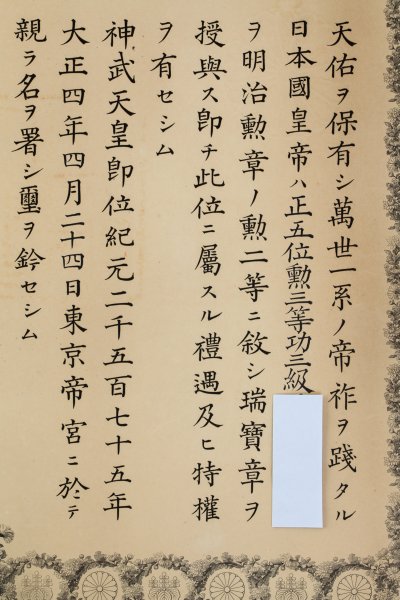 天佑ヲ保有シ萬世一系ノ帝祚ヲ踐タル
日本國皇帝ハ正五位勲三等功三級
ヲ明治勲章ノ勲二等ニ敘シ瑞寶章ヲ
授與ス卽チ此位ニ屬スル禮遇及ヒ特權
ヲ有セシム
神武天皇卽位紀元二千五百七十五年
大正四年四月二十四日東京帝宮ニ於テ
親ラ名ヲ署シ璽ヲ鈐セシム